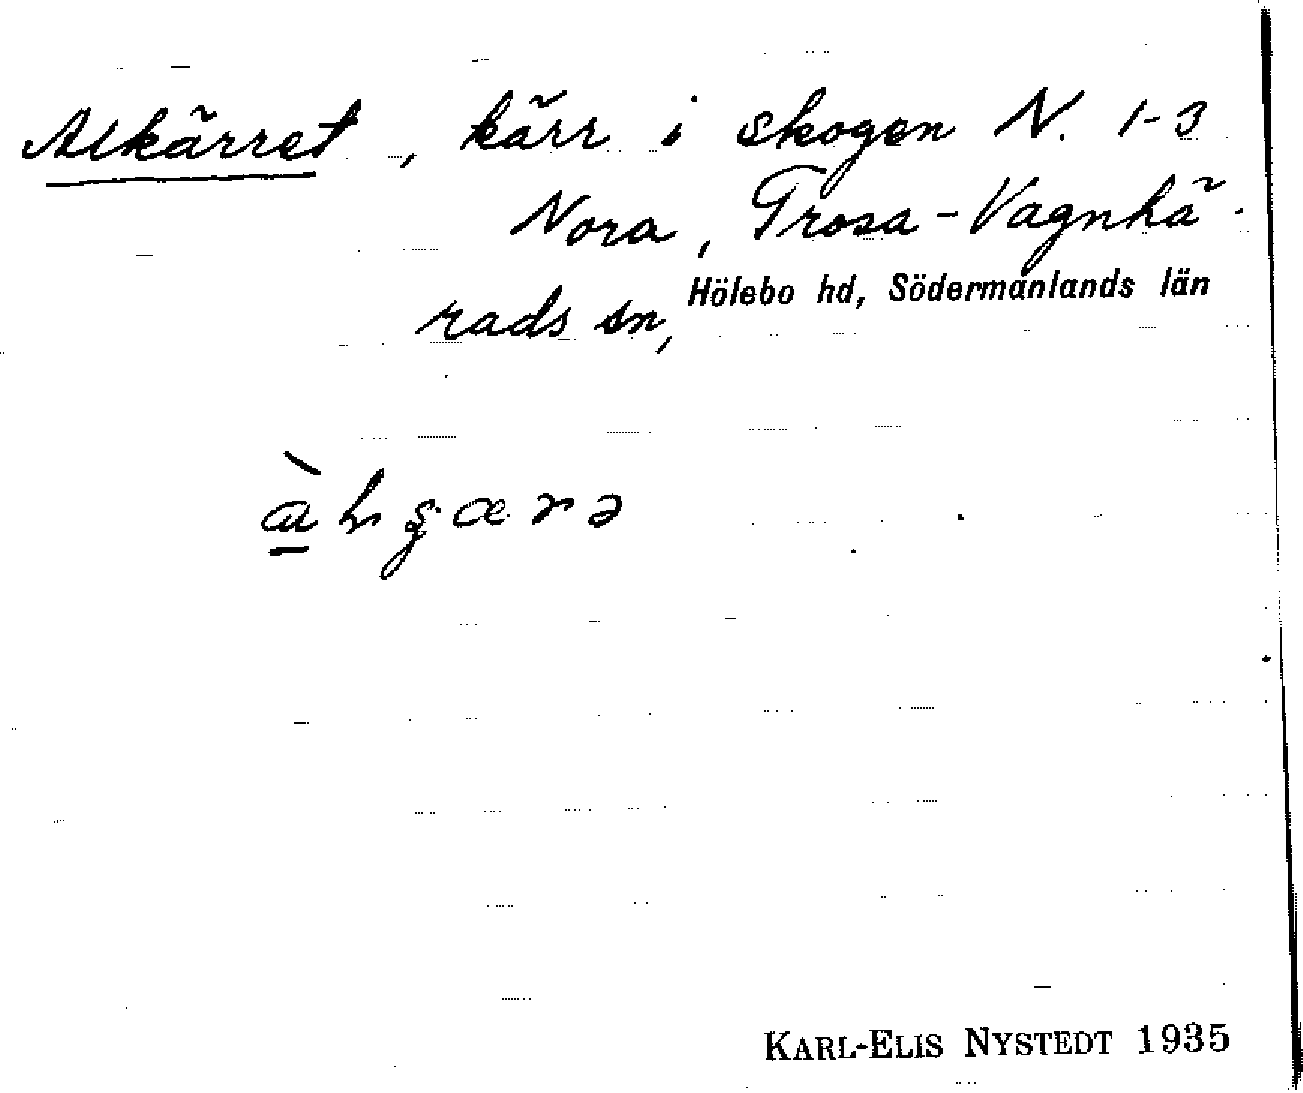 Alkärret, kärr i skogen N. 1-3
Nora, Trosa-Vagnhä-
rads sn, Hölebo hd, Södermanlands län
KARL-ELIS NYSTEDT 1935